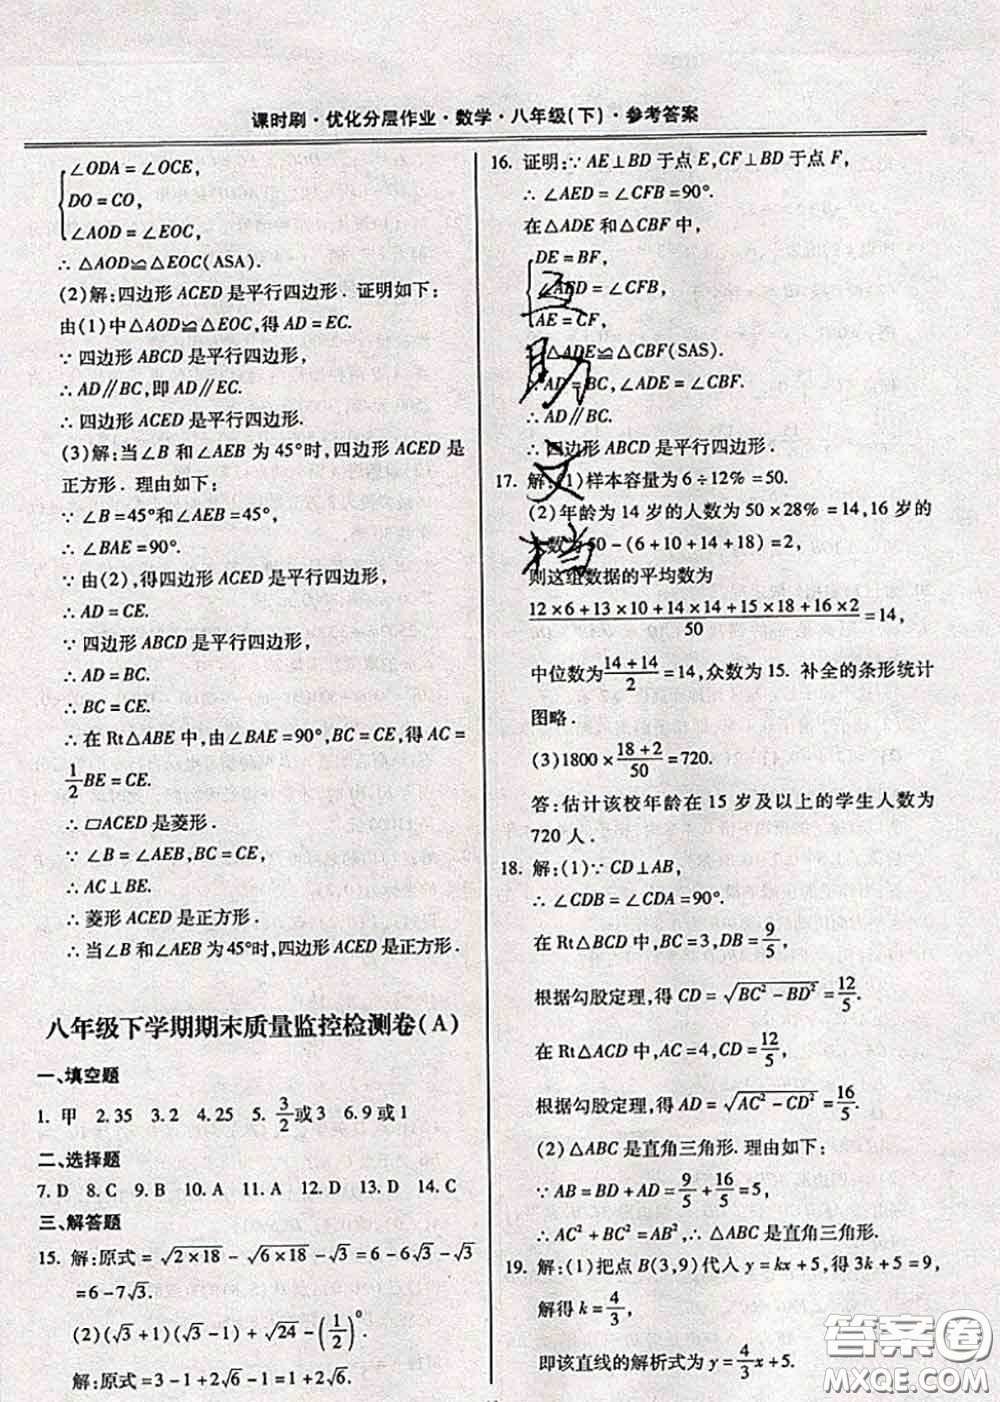 课时刷·优化分层作业·数学·八年级(下)·参考答案
∠ODA=∠OCE,
DO=CO,
∠AOD=∠EOC,
∴△AOD≌△EOC(ASA).
(2)解:四边形ACED是平行四边形.证明如下:
由(1)中△AOD≌△EOC,得AD=EC.
∵四边形ABCD是平行四边形,
∴AD∥BC,即AD∥EC.
∴四边形ACED是平行四边形.
(3)解:当∠B和∠AEB为45°时,四边形ACED是
正方形.理由如下:
∵∠B=45°和∠AEB=45°,
∴∠BAE=90°.
∵由(2),得四边形ACED是平行四边形,
∴AD=CE.
∵四边形ABCD是平行四边形,
∴AD=BC.
∴BC=CE.
∴在Rt△ABE中,由∠BAE=90°,BC=CE,得AC=
1/2BE=CE.
∴▱ACED是菱形.
∵∠B=∠AEB,BC=CE,
∴AC⊥BE.
∴菱形ACED是正方形.
∴当∠B和∠AEB为45°时,四边形ACED是正方形.
八年级下学期期末质量监控检测卷(A)
一、填空题
1.甲 2.35 3.2 4.25 5.3/2或3 6.9或1
二、选择题
7.D 8.C 9.B 10.A 11.A 12.D 13.D 14.C
三、解答题
15.解:原式=√(2×18)-√(6×18)-√3=6-6√3-√3
=6-7√3.
(2)(√3+1)(√3-1)+√24-(1/2)⁰.
解:原式=3-1+2√6-1=1+2√6.
16.证明:∵AE⊥BD于点E,CF⊥BD于点F,
∴∠AED=∠CFB=90°.
在△ADE和△CBF中,
DE=BF,
∠AED=∠CFB,
AE=CF,
△ADE≌△CBF(SAS).
AD=BC,∠ADE=∠CBF.
∴AD∥BC.
∴四边形ABCD是平行四边形.
17.解:(1)样本容量为6÷12%=50.
(2)年龄为14岁的人数为50×28%=14,16岁的
人数为50-(6+10+14+18)=2,
则这组数据的平均数为
(12×6+13×10+14×14+15×18+16×2)/50=14,
中位数为(14+14)/2=14,众数为15.补全的条形统计
图略.
(3)1800×(18+2)/50=720.
答:估计该校年龄在15岁及以上的学生人数为
720人.
18.解:(1)∵CD⊥AB,
∴∠CDB=∠CDA=90°.
在Rt△BCD中,BC=3,DB=9/5,
根据勾股定理,得CD=√(BC²-BD²)=12/5.
在Rt△ACD中,AC=4,CD=12/5,
根据勾股定理,得AD=√(AC²-CD²)=16/5.
(2)△ABC是直角三角形.理由如下:
∵AB=BD+AD=9/5+16/5=5,
∴AC²+BC²=AB²,∴△ABC是直角三角形.
19.解:(1)把点B(3,9)代人y=kx+5,得3k+5=9,
解得k=4/3,
即该直线的解析式为y=4/3x+5.
互
助
文
档
答案卷
MXQE.COM